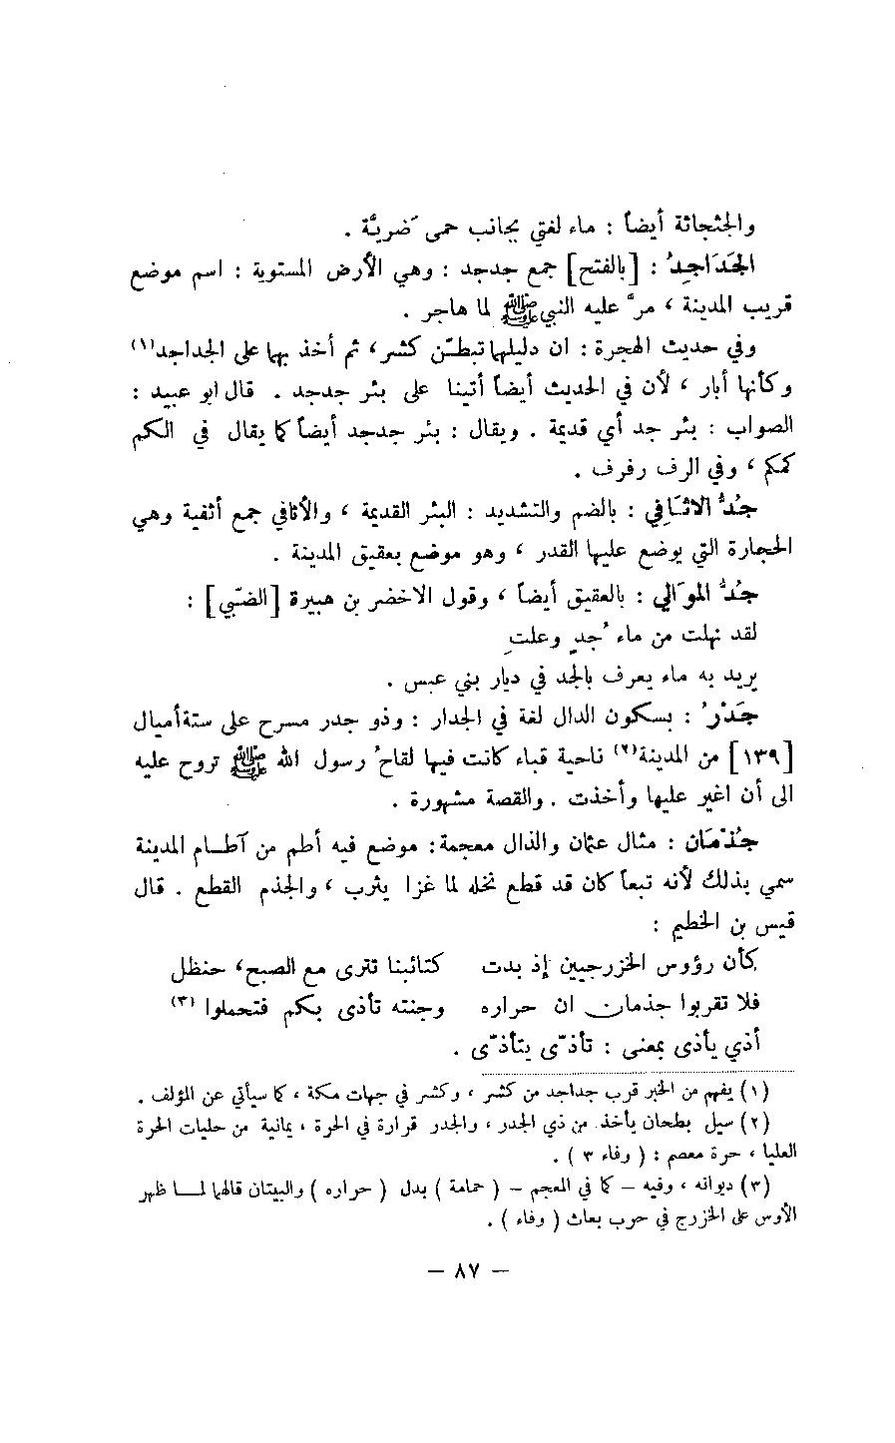 والجثجاثة أيضاً : ماء لغني بجانب حمى ضريَّة .
الجَدَاجِدُ : [بالفتح] جمع جدجد : وهي الأرض المستوية : اسم موضع
قريب المدينة ، مرَّ عليه النبي ﷺ لما هاجر .
وفي حديث الهجرة : ان دليلهما تبطّن كشر ، ثم أخذ بهما على الجداجد(١)
وكأنها أبار ، لأن في الحديث أيضاً أتينا على بئر جدجد . قال ابو عبيد :
الصواب : بئر جد أي قديمة . ويقال : بئر جدجد أيضاً كما يقال في الكم
كمكم ، وفي الرف رفرف .
جُدُّ الاثَافِي : بالضم والتشديد : البئر القديمة ، والأثافي جمع أثفية وهي
الحجارة التي يوضع عليها القدر ، وهو موضع بعقيق المدينة .
جُدُّ الموَالي : بالعقيق أيضاً ، وقول الاخضر بن هبيرة [الضبّي] :
لقد نهلت من ماء جُدٍ وعلتِ
يريد به ماء يعرف بالجد في ديار بني عبس .
جَدْرُ : بسكون الدال لغة في الجدار : وذو جدر مسرح على ستة أميال
[١٣٩] من المدينة(٢) ناحية قباء كانت فيها لقاحُ رسول الله ﷺ تروح عليه
الى أن اغير عليها وأخذت . والقصة مشهورة .
جُذْمَان : مثال عثمان والذال معجمة : موضع فيه أطم من آطام المدينة
سمي بذلك لأنه تبعاً كان قد قطع نخله لما غزا يثرب ، والجذم القطع . قال
قيس بن الخطيم :
كأن رؤوس الخزرجيين إذ بدت كتائبنا تترى مع الصبح ، حنظل
فلا تقربوا جذمان ان حراره وجنته تأذى بكم فتحملوا (٣)
أذي يأذى بمعنى : تأذّى يتأذّى .
(١) يفهم من الخبر قرب جداجد من كشر ، وكشر في جهات مكة ، كما سيأتي عن المؤلف .
(٢) سيل بطحان يأخذ من ذي الجدر ، والجدر قرارة في الحرة ، يمانية من حليات الحرة
العليا ، حرة معصم : ( وفاء ٣ ) .
(٣) ديوانه ، وفيه – كما في المعجم – ( حمامة ) بدل ( حراره ) والبيتان قالهما لما ظهر
الأوس على الخزرج في حرب بعاث ( وفاء ) .
— ٨٧ —